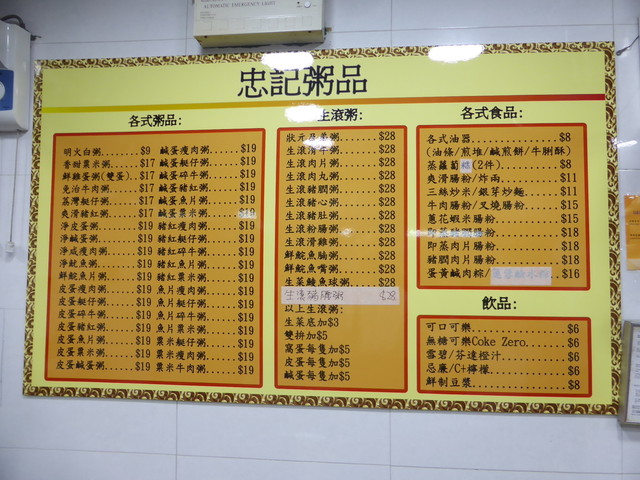 AUTOMATIC EMERGENCY LIGHT
忠記粥品
各式粥品:
明火白粥........$9
香甜粟米粥......$17
鮮雞蛋粥(雙蛋)..$17
免治牛肉粥......$17
荔灣艇仔粥......$17
爽滑豬紅粥......$17
淨皮蛋粥........$19
淨鹹蛋粥........$19
淨咸瘦肉粥......$19
淨魷魚粥........$19
鮮鯇魚片粥......$19
皮蛋瘦肉粥......$19
皮蛋艇仔粥......$19
皮蛋碎牛粥......$19
皮蛋豬紅粥......$19
皮蛋魚片粥......$19
皮蛋粟米粥......$19
皮蛋鹹蛋粥......$19
鹹蛋瘦肉粥......$19
鹹蛋艇仔粥......$19
鹹蛋碎牛粥......$19
鹹蛋豬紅粥......$19
鹹蛋魚片粥......$19
鹹蛋粟米粥......$19
豬紅瘦肉粥......$19
豬紅艇仔粥......$19
豬紅碎牛粥......$19
豬紅魚片粥......$19
豬紅粟米粥......$19
魚片瘦肉粥......$19
魚片艇仔粥......$19
魚片碎牛粥......$19
魚片粟米粥......$19
粟米艇仔粥......$19
粟米瘦肉粥......$19
粟米牛肉粥......$19
生滾粥:
狀元及第粥......$28
生滾滑牛粥......$28
生滾肉片粥......$28
生滾肉丸粥......$28
生滾豬膶粥......$28
生滾豬心粥......$28
生滾豬肚粥......$28
生滾粉腸粥......$28
生滾滑雞粥......$28
鮮鯇魚腩粥......$28
鮮鯇魚嘴粥......$28
生菜鯪魚球粥....$28
生滾 粥 $28
以上生滾粥:
生菜底加$3
雙拼加$5
窩蛋每隻加$5
皮蛋每隻加$5
鹹蛋每隻加$5
各式食品:
各式油器............$8
(油條/煎堆/鹹煎餅/牛脷酥)
蒸蘿蔔糕(2件).......$8
爽滑腸粉/炸兩.......$11
三絲炒米/銀芽炒麵...$11
牛肉腸粉/叉燒腸粉...$15
蔥花蝦米腸粉........$15
腸粉........$18
即蒸肉片腸粉........$18
豬膶肉片腸粉........$18
蛋黃鹹肉粽/ .$16
飲品:
可口可樂............$6
無糖可樂Coke Zero...$6
雪碧/芬達橙汁.......$6
忌廉/C+檸檬.........$6
鮮制豆漿............$8